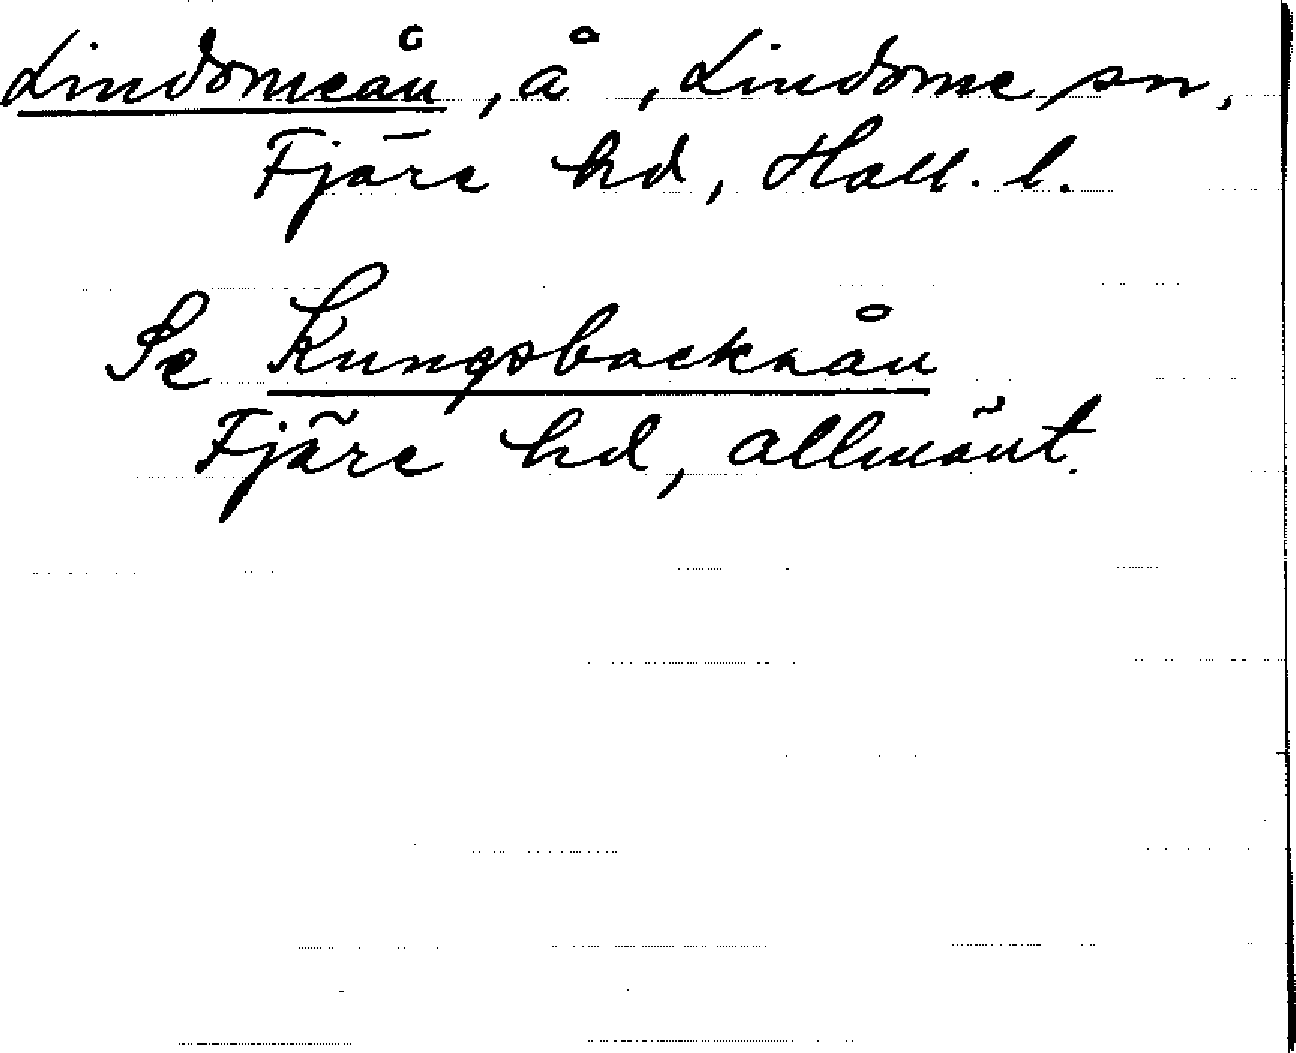 Lindomeån, å, Lindome sn,
Fjäre hd, Hall. l.
Se Kungsbackaån
Fjäre hd, allmänt.